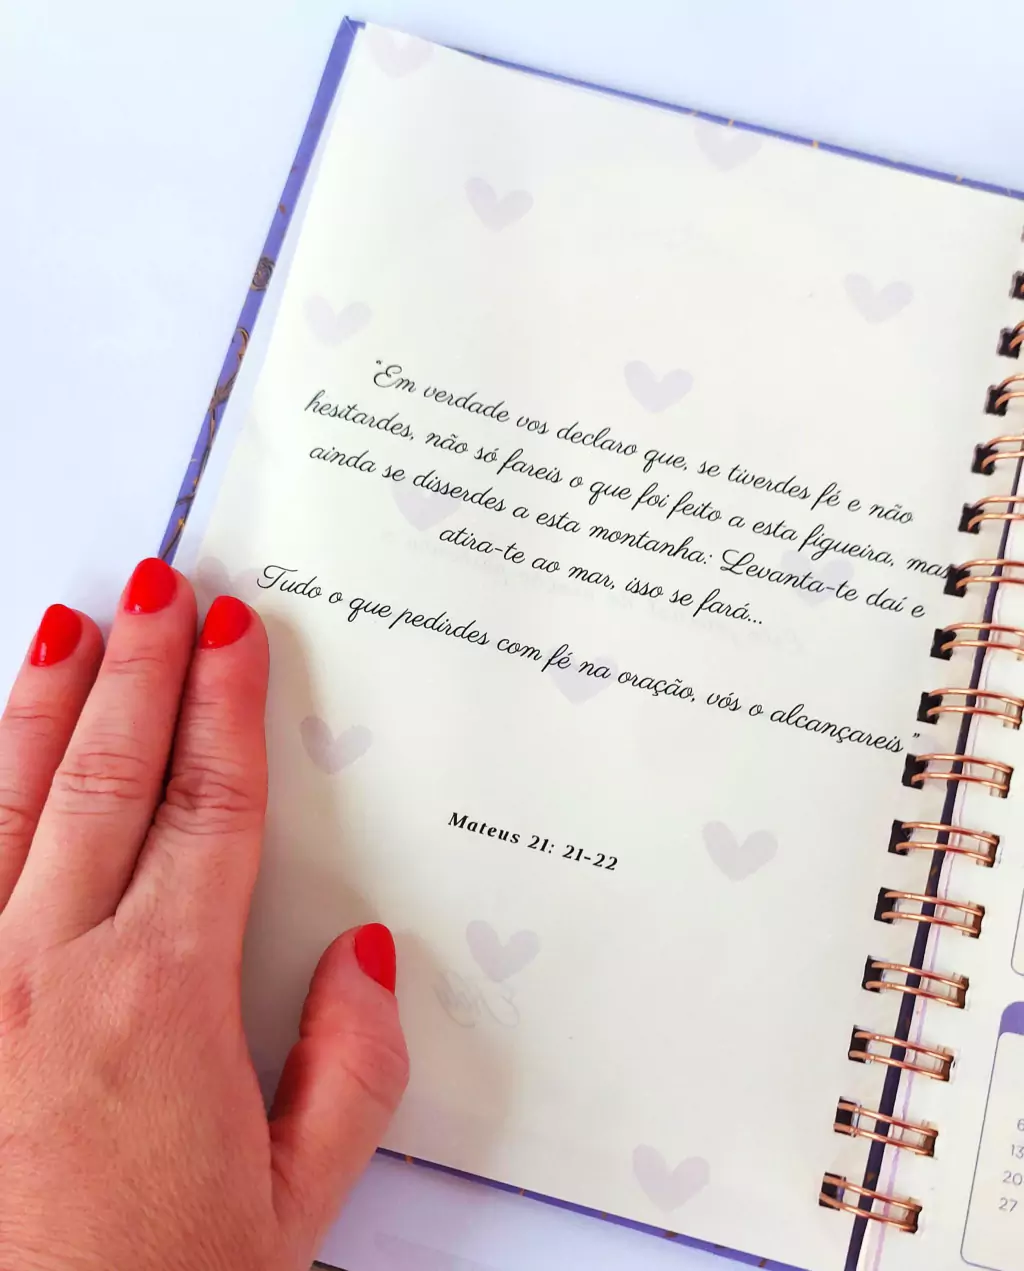 “Em verdade vos declaro que, se tiverdes fé e não
hesitardes, não só fareis o que foi feito a esta figueira, mas
ainda se disserdes a esta montanha: Levanta-te daí e
atira-te ao mar, isso se fará...
Tudo o que pedirdes com fé na oração, vós o alcançareis ”
Mateus 21: 21-22
6
13
20
27